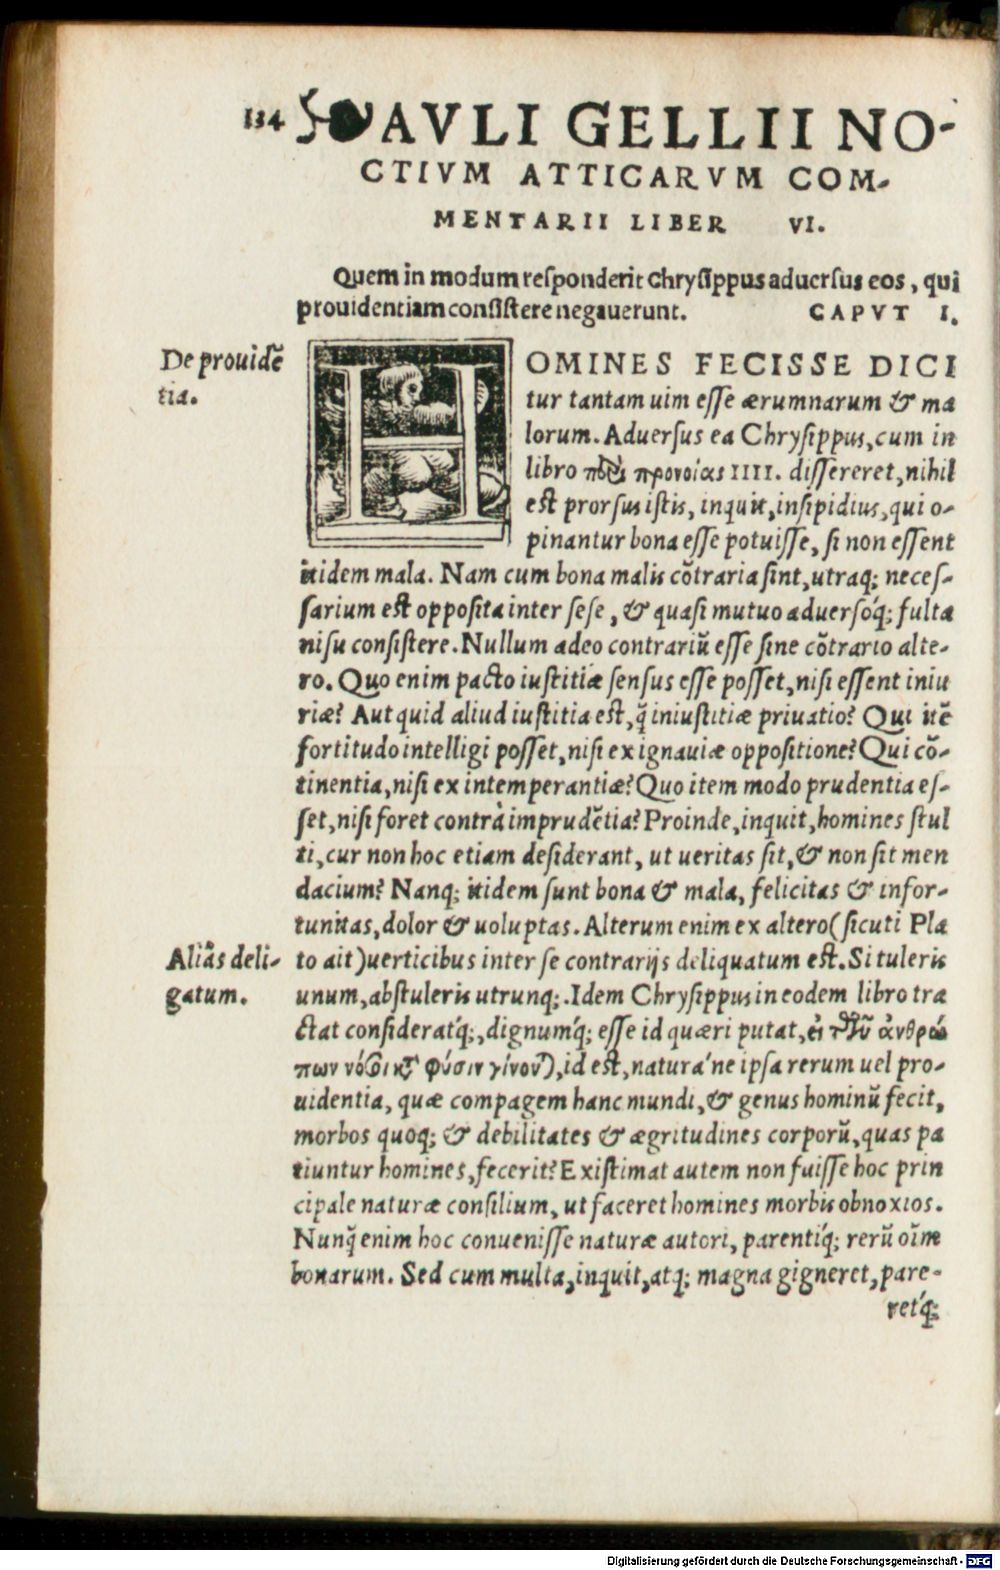 134 AVLI GELLII NO-
CTIVM ATTICARVM COM-
MENTARII LIBER VI.
Quem in modum responderit Chrysippus aduersus eos, qui
prouidentiam consistere negauerunt. CAPVT I.
De prouidẽ
tia.
HOMINES FECISSE DICI
tur tantam uim esse ærumnarum & ma
lorum. Aduersus ea Chrysippus, cum in
libro προνοίας IIII. dissereret, nihil
est prorsus istis, inquit, insipidius, qui o-
pinantur bona esse potuisse, si non essent
itidem mala. Nam cum bona malis cõtraria sint, utraq; neces-
sarium est opposita inter sese, & quasi mutuo aduersóq; fulta
nisu consistere. Nullum adeo contrariũ esse sine cõtrario alte-
ro. Quo enim pacto iustitiæ sensus esse posset, nisi essent iniu
riæ? Aut quid aliud iustitia est, q̃ iniustitiæ priuatio? Qui itẽ
fortitudo intelligi posset, nisi ex ignauiæ oppositione? Qui cõ-
tinentia, nisi ex intemperantiæ? Quo item modo prudentia es-
set, nisi foret contrà imprudẽtia? Proinde, inquit, homines stul
ti, cur non hoc etiam desiderant, ut ueritas sit, & non sit men
dacium? Nanq; itidem sunt bona & mala, felicitas & infor-
tunitas, dolor & uoluptas. Alterum enim ex altero (sicuti Pla
Aliâs deli-
gatum.
to ait) uerticibus inter se contrarijs deliquatum est. Si tuleris
unum, abstuleris utrunq;. Idem Chrysippus in eodem libro tra
ctat considerat́q;, dignumq́; esse id quæri putat, εἰ ἀνθρώ
πων νόσοι κτ̃ φύσιν γίνον), id est, natura'ne ipsa rerum uel pro-
uidentia, quæ compagem hanc mundi, & genus hominũ fecit,
morbos quoq; & debilitates & ægritudines corporũ, quas pa
tiuntur homines, fecerit? Existimat autem non fuisse hoc prin
cipale naturæ consilium, ut faceret homines morbis obnoxios.
Nunq̃ enim hoc conuenisse naturæ autori, parentiq́; rerũ oĩm
bonarum. Sed cum multa, inquit, atq; magna gigneret, pare-
ret́q;
Digitalisierung gefördert durch die Deutsche Forschungsgemeinschaft - DFG